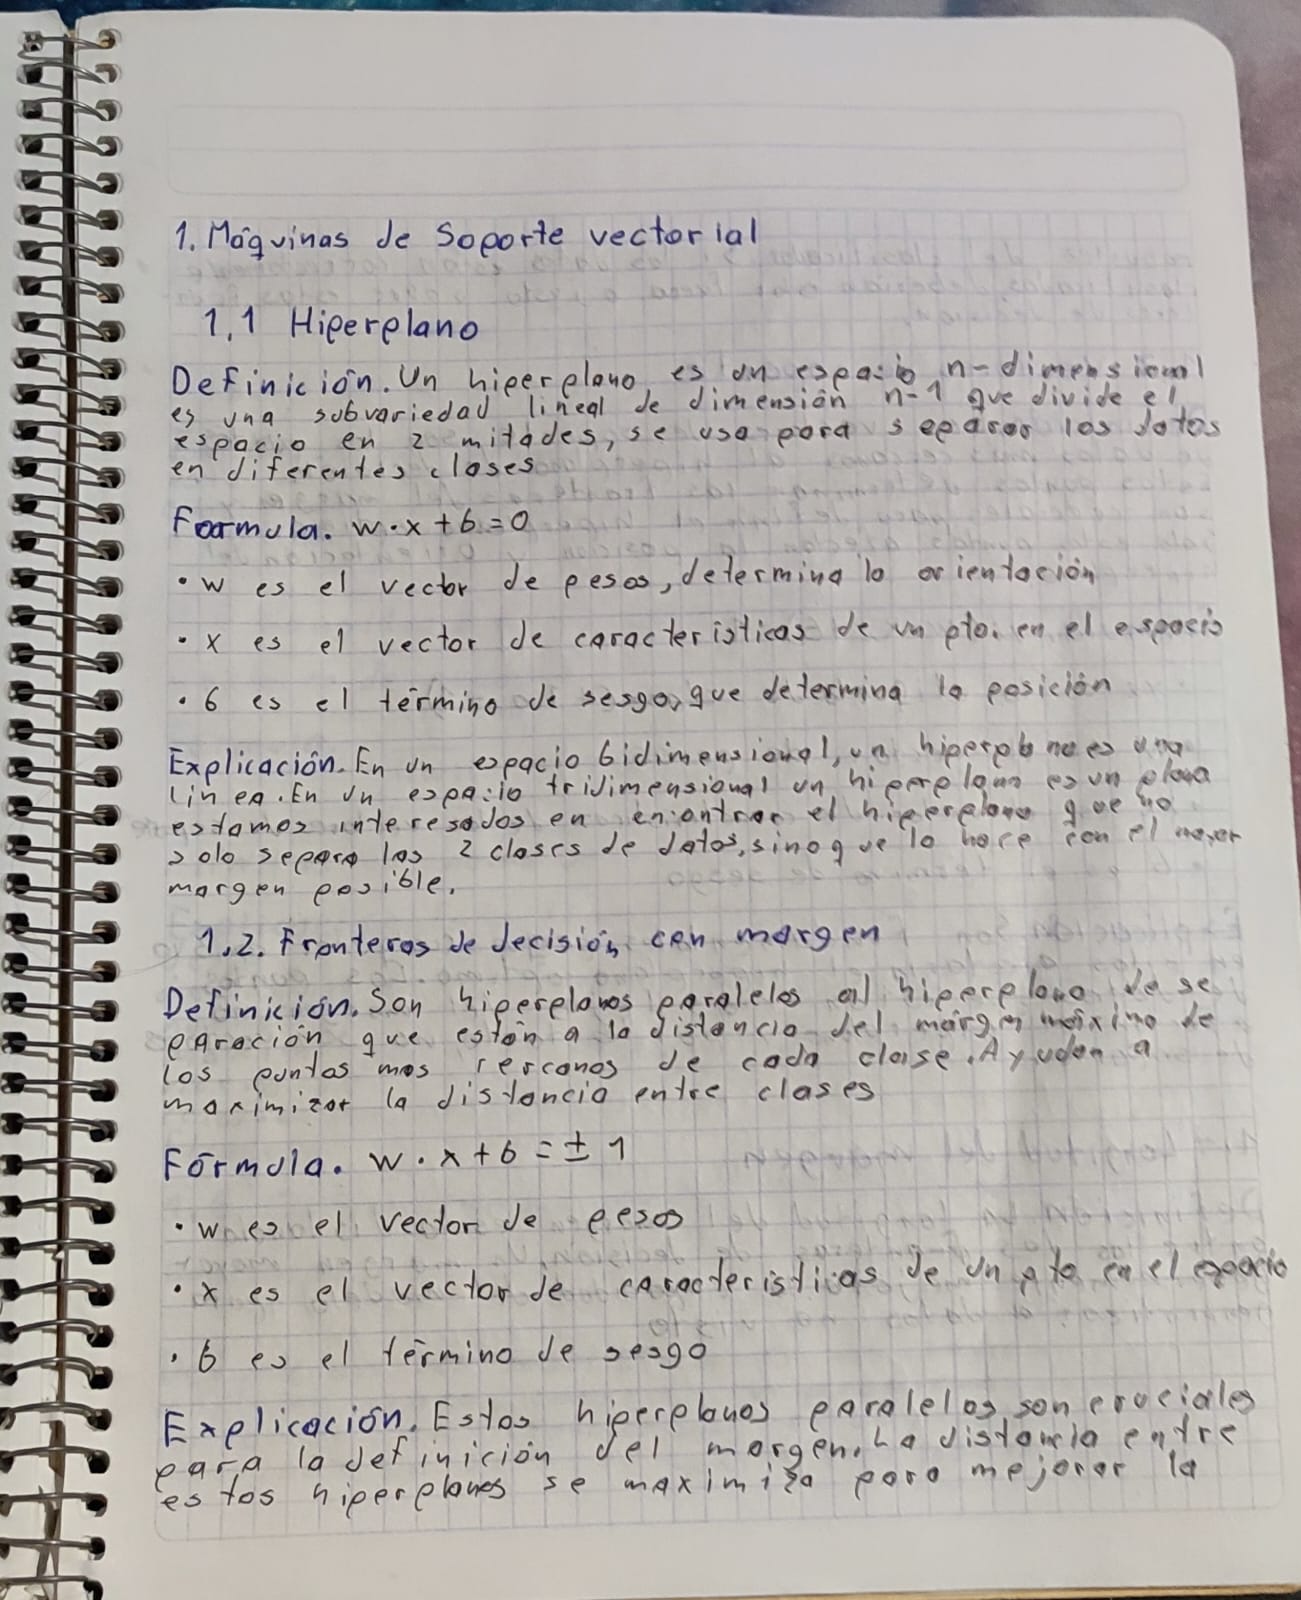 1. Máquinas de Soporte vectorial
1.1 Hiperplano
Definición. Un hiperplano es un espacio n-dimensional
es una subvariedad lineal de dimensión n-1 que divide el
espacio en 2 mitades, se usa para separar los datos
en diferentes clases
Formula. w·x+b=0
· w es el vector de pesos, determina la orientación
· x es el vector de caracteristicas de un pto. en el espacio
· b es el término de sesgo, que determina la posición
Explicación. En un espacio bidimensional, un hiperplano es una
linea. En un espacio tridimensional un hiperplano es un plano
estamos interesados en encontrar el hiperplano que no
solo separa las 2 clases de datos, sino que lo hace con el mayor
margen posible.
1.2. Fronteras de decisión con margen
Definición. Son hiperplanos paralelos al hiperplano de se
paración que están a la distancia del márgen máximo de
los puntos mas cercanos de cada clase. Ayudan a
maximizar la distancia entre clases
Fórmula. w·x+b=±1
· w es el vector de pesos
· x es el vector de caracteristicas de un pto en el espacio
· b es el término de sesgo
Explicación. Estos hiperplanos paralelos son cruciales
para la definición del margen. La distancia entre
estos hiperplanos se maximiza para mejorar la